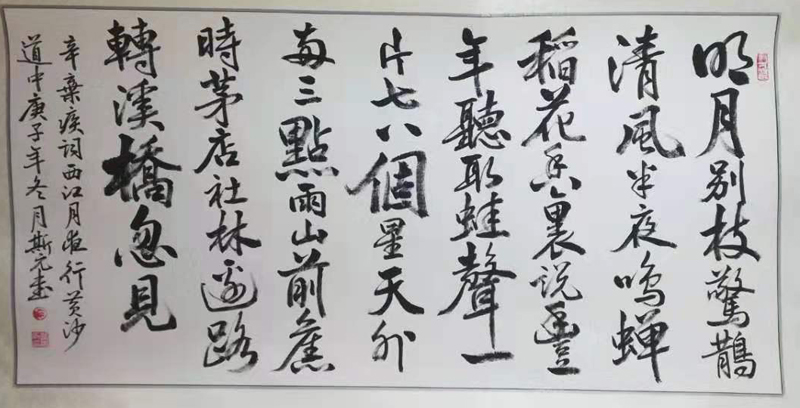 明月別枝驚鵲
清風半夜鳴蝉
稻花香裏説豐
年聽取蛙聲一
片七八個星天外
两三點雨山前舊
時茅店社林邊路
轉溪橋忽見
辛棄疾詞西江月夜行黄沙
道中庚子年冬月斯元書